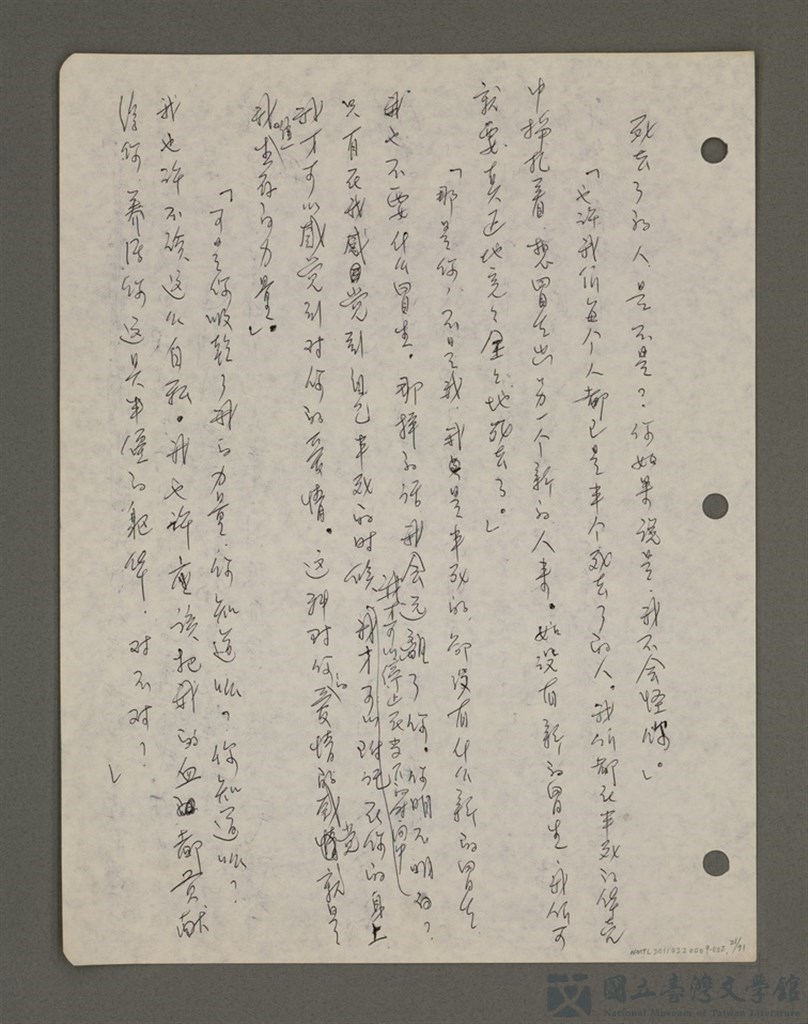 死去了的人,是不是?你如果說是,我不会怪你」。
「也許我们每个人都已是半个死去了的人。我们都在半死的体壳
中掙扎着,想冒生出另一个新的人来。如没有新的冒生,我们可
就要真正地完完全全地死去了。」
「那是你,不是我,我是半死的,却沒有什么新的冒生,
我也不要什么冒生。那樣的话,我会远離了你。你明不明白?
只有在我感覚到自己半死的时候,我才可以附托在你的身上,
我才可以停止在
我才可以感觉到对你的爱情。这种对你的爱情的感觉就是
我生存的力量」。
「可是你吸乾了我的力量,你知道嗎?你知道嗎?
我也許不該这么自私。我也許应該把我的血都貢献
給你,养活你这具半僵的躯体,对不对?」
NMTL20110220009-002, 21/91
國立臺灣文學館
National Museum of Taiwan Literature